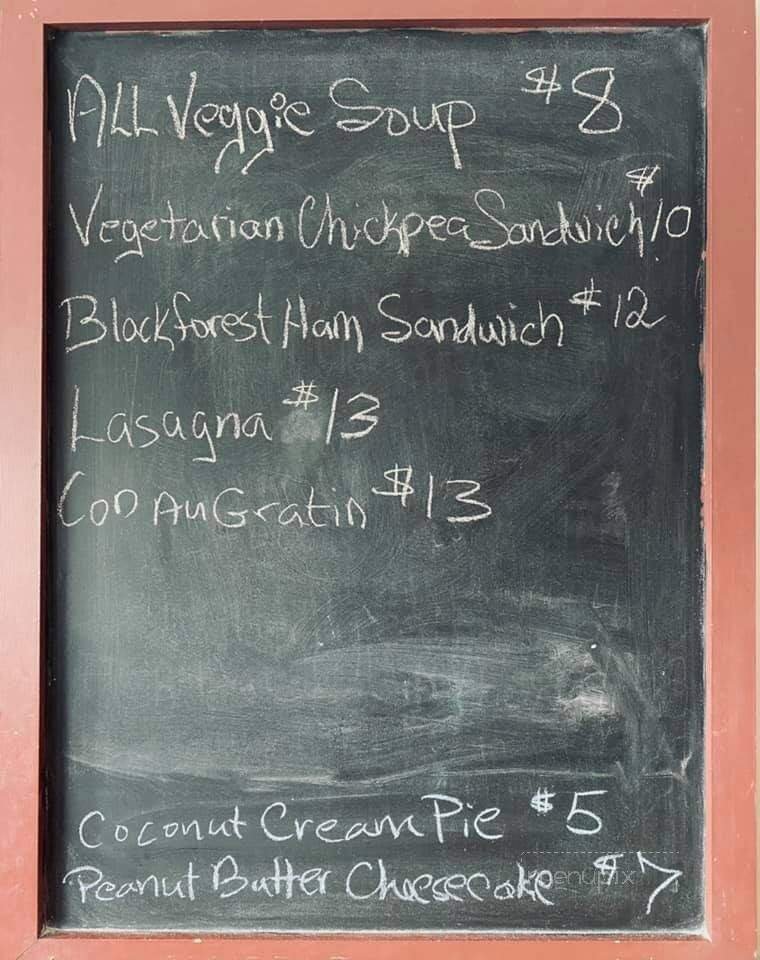 ALL Veggie Soup $8
Vegetarian Chickpea Sandwich $10
Blackforest Ham Sandwich $12
Lasagna $13
COD Au Gratin $13
Coconut Cream Pie $5
Peanut Butter Cheesecake $7
menupix